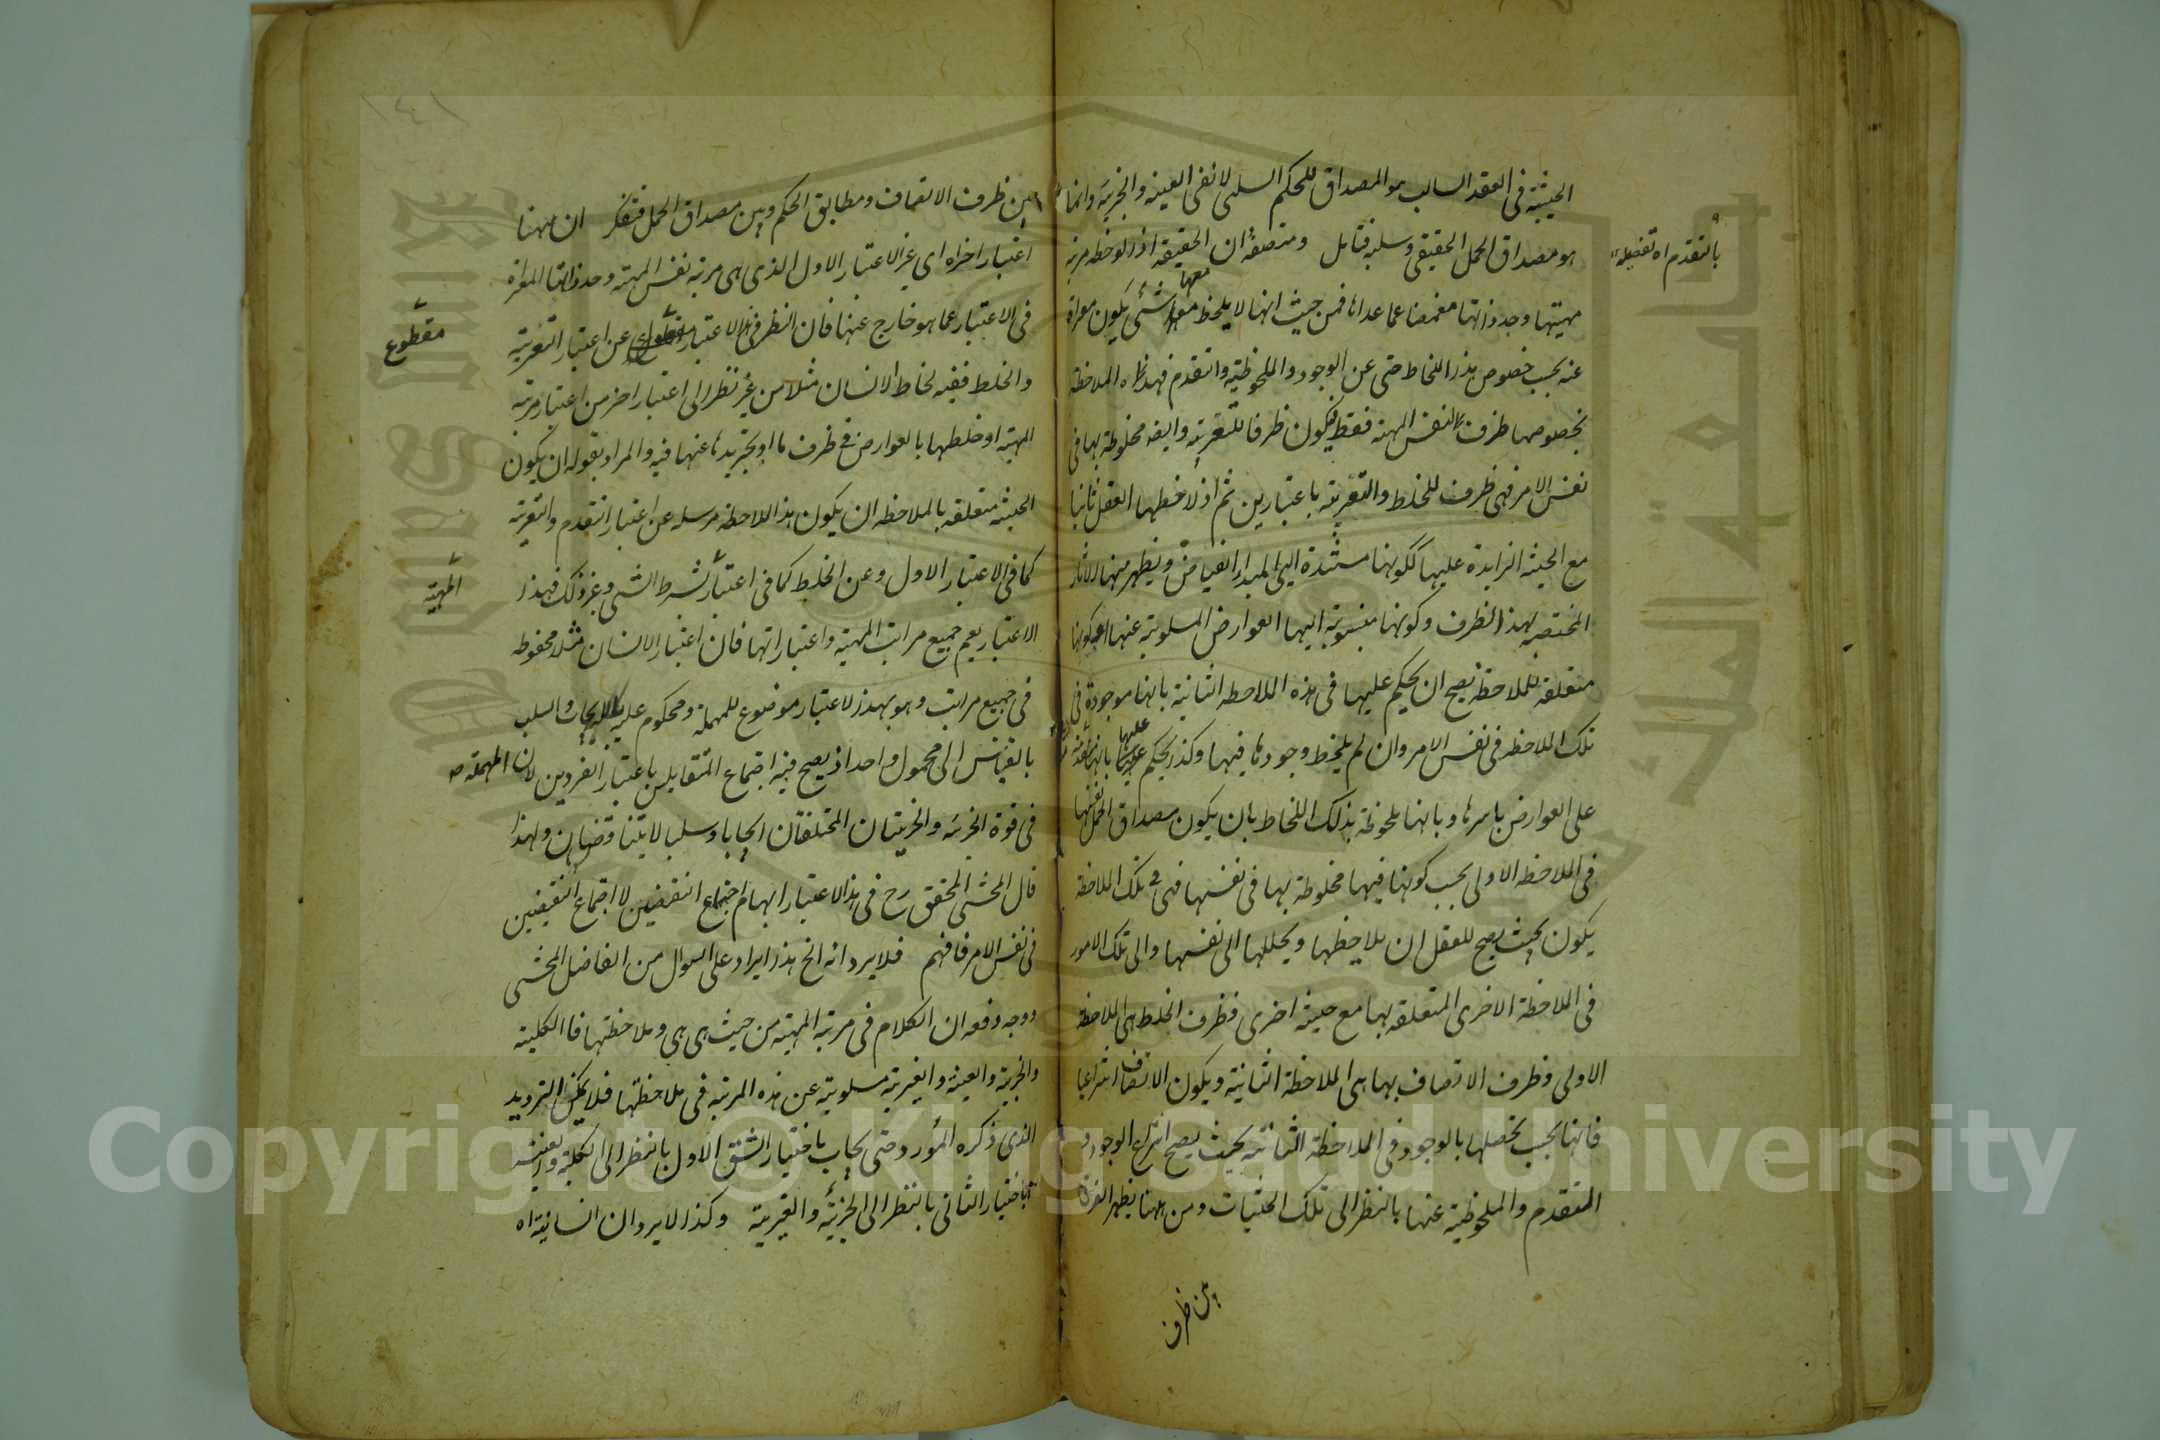 الحيثية في العقد السالب هو المصداق للحكم السلبي لا نفى العينية والجزئية وانما
هو مصداق الحمل الحقيقي وسلبه فتامل ومتصفة ان الحقيقة اذا لوحظ مرتبة
بالتقدم اه تفصيله
مهيتها وحد ذاتها مغمضا عما عداها فمن حيث انها لا يلحظ معها شئ يكون معراة
عنه بحسب خصوص هذا اللحاظ حتى عن الوجود والملحوظية والتقدم فهذه الملاحظة
بخصوصها ظرف لنفس المهية فقط فيكون ظرفا للتعرية وايضه مخلوطة بها في
نفس الامر فهي ظرف للخلط والتعرية باعتبارين ثم اذا لاحظها العقل ثانيا
مع الحيثية الزايدة عليها ككونها مستندة الى المبدا الفياض ويظهر منها الاثار
المختصة بهذا الظرف وكونها منسوبة اليها العوارض المسلوبة عنها وكونها
متعلقة للملاحظة يصح ان يحكم عليها في هذه الملاحظة الثانية بانها موجودة في
تلك الملاحظة في نفس الامر وان لم يلحظ وجودها فيها وكذا يحكم عليها بانها متقدمة
على العوارض باسرها وبانها ملحوظة بذلك اللحاظ بان يكون مصداق الحمل نفسها
في الملاحظة الاولى بحسب كونها فيها مخلوطة بها في نفسها فهي في تلك الملاحظة
يكون بحيث يصح للعقل ان يلاحظها ويحللها الى نفسها والى تلك الامور
في الملاحظة الاخرى المتعلقة بها مع حيثية اخرى فظرف الخلط هي الملاحظة
الاولى وظرف الاتصاف بها هي الملاحظة الثانية ويكون الاتصاف انتزاعيا
فانها بحسب تحصلها بالوجود في الملاحظة الثانية بحيث يصح انتزاع الوجود و
التقدم والملحوظية عنها بالنظر الى تلك الحيثيات ومن ههنا يظهر الفرق
بين ظرف
بين ظرف الاتصاف ومطابق الحكم وبين مصداق الحمل فتفكر ان ههنا
اعتبار اخراه اى غير الاعتبار الاول الذي هي مرتبة نفس المهية وحد ذاتها المعراة
في الاعتبار عما هو خارج عنها فان النظر في هذا الاعتبار مقطوع عن اعتبار التعرية
مقطوع
والخلط ففيه لحاظ الانسان مثلا من غير نظر الى اعتبار اخر من اعتبار مرتبة
المهية او خلطها بالعوارض في ظرف ما او تجريدها عنها فيه والمراد بقوله ان يكون
الحيثية متعلقة بالملاحظة ان يكون هذا الملاحظة مرسلة عن اعتبار التقدم والتعرية
كما في الاعتبار الاول وعن الخلط كما في اعتبار بشرط الشئ وغير ذلك فهذا
المهية
الاعتبار يعم جميع مراتب المهية واعتباراتها فان اعتبار الانسان مثلا محفوظه
في جميع مراتب وهو بهذا الاعتبار موضوع للمهملة ومحكوم عليه بالايجاب والسلب
بالقياس الى محمول واحد اذ يصح فيه اجتماع المتقابلين باعتبار الفردين لان المهملة
في قوة الجزئية والجزئيتان المختلفتان ايجابا وسلبا لا يتناقضان ولهذا
قال المحشى المحقق رح في هذا الاعتبار ابهام اجتماع النقيضين لا اجتماع النقيضين
في نفس الامر فافهم فلا يرد انه الخ هذا ايراد على السوال من الفاضل المحشى
ووجه دفعه ان الكلام في مرتبة المهية من حيث هي هي وملاحظتها فالكلية
والجزئية والعينية والغيرية مسلوبة عن هذه المرتبة في ملاحظتها فلا يمكن الترديد
الذي ذكره المورد حتى يجاب باختيار الشق الاول بالنظر الى الكلية والعينية
باختيار الثاني بالنظر الى الجزئية والغيرية وكذا لا يرد ان انسانية اه
Copyright © King Saud University
King Saud University
جامعة الملك سعود